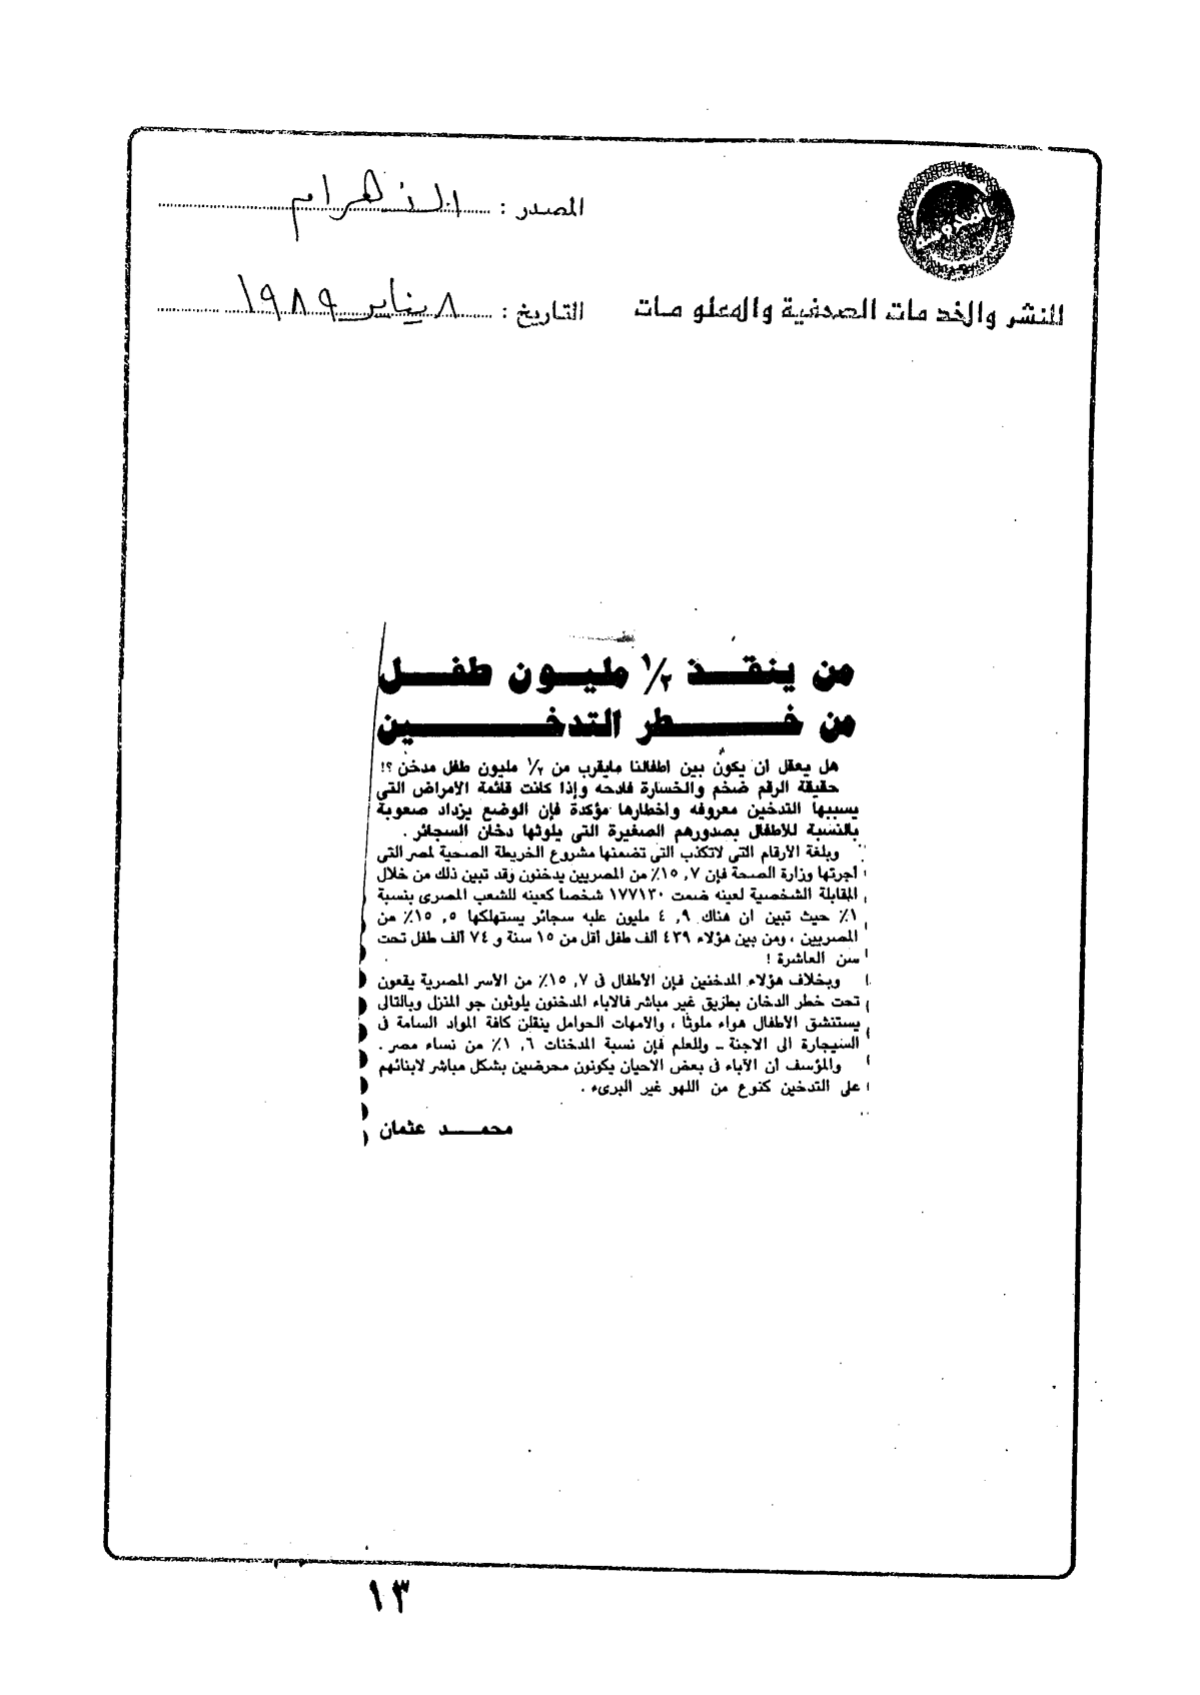 المحروسة
المصدر : الأهرام
للنشر والخدمات الصحفية والمعلومات
التاريخ : ٨ يناير ١٩٨٩
من ينقذ ١/٢ مليون طفل
من خطر التدخين
هل يعقل ان يكون بين اطفالنا مايقرب من ١/٢ مليون طفل مدخن ؟!
حقيقة الرقم ضخم والخسارة فادحه وإذا كانت قائمة الأمراض التى
يسببها التدخين معروفه واخطارها مؤكدة فإن الوضع يزداد صعوبة
بالنسبة للأطفال بصدورهم الصغيرة التى يلوثها دخان السجائر .
وبلغة الأرقام التى لاتكذب التى تضمنها مشروع الخريطة الصحية لمصر التى
اجرتها وزارة الصحة فإن ٧, ١٥٪ من المصريين يدخنون وقد تبين ذلك من خلال
المقابلة الشخصية لعينه ضمت ١٧٧١٣٠ شخصا كعينه للشعب المصرى بنسبة
١٪ حيث تبين ان هناك ٩, ٤ مليون علبه سجائر يستهلكها ٥, ١٥٪ من
المصريين ، ومن بين هؤلاء ٤٣٩ الف طفل أقل من ١٥ سنة و ٧٤ ألف طفل تحت
سن العاشرة !
وبخلاف هؤلاء المدخنين فإن الأطفال فى ٧, ١٥٪ من الأسر المصرية يقعون
تحت خطر الدخان بطريق غير مباشر فالاباء المدخنون يلوثون جو المنزل وبالتالى
يستنشق الأطفال هواء ملوثا ، والأمهات الحوامل ينقلن كافة المواد السامة فى
السيجارة الى الاجنة ــ وللعلم فإن نسبة المدخنات ٦, ١٪ من نساء مصر .
والمؤسف ان الآباء فى بعض الاحيان يكونون محرضين بشكل مباشر لابنائهم
على التدخين كنوع من اللهو غير البرىء .
محمد عثمان
١٣